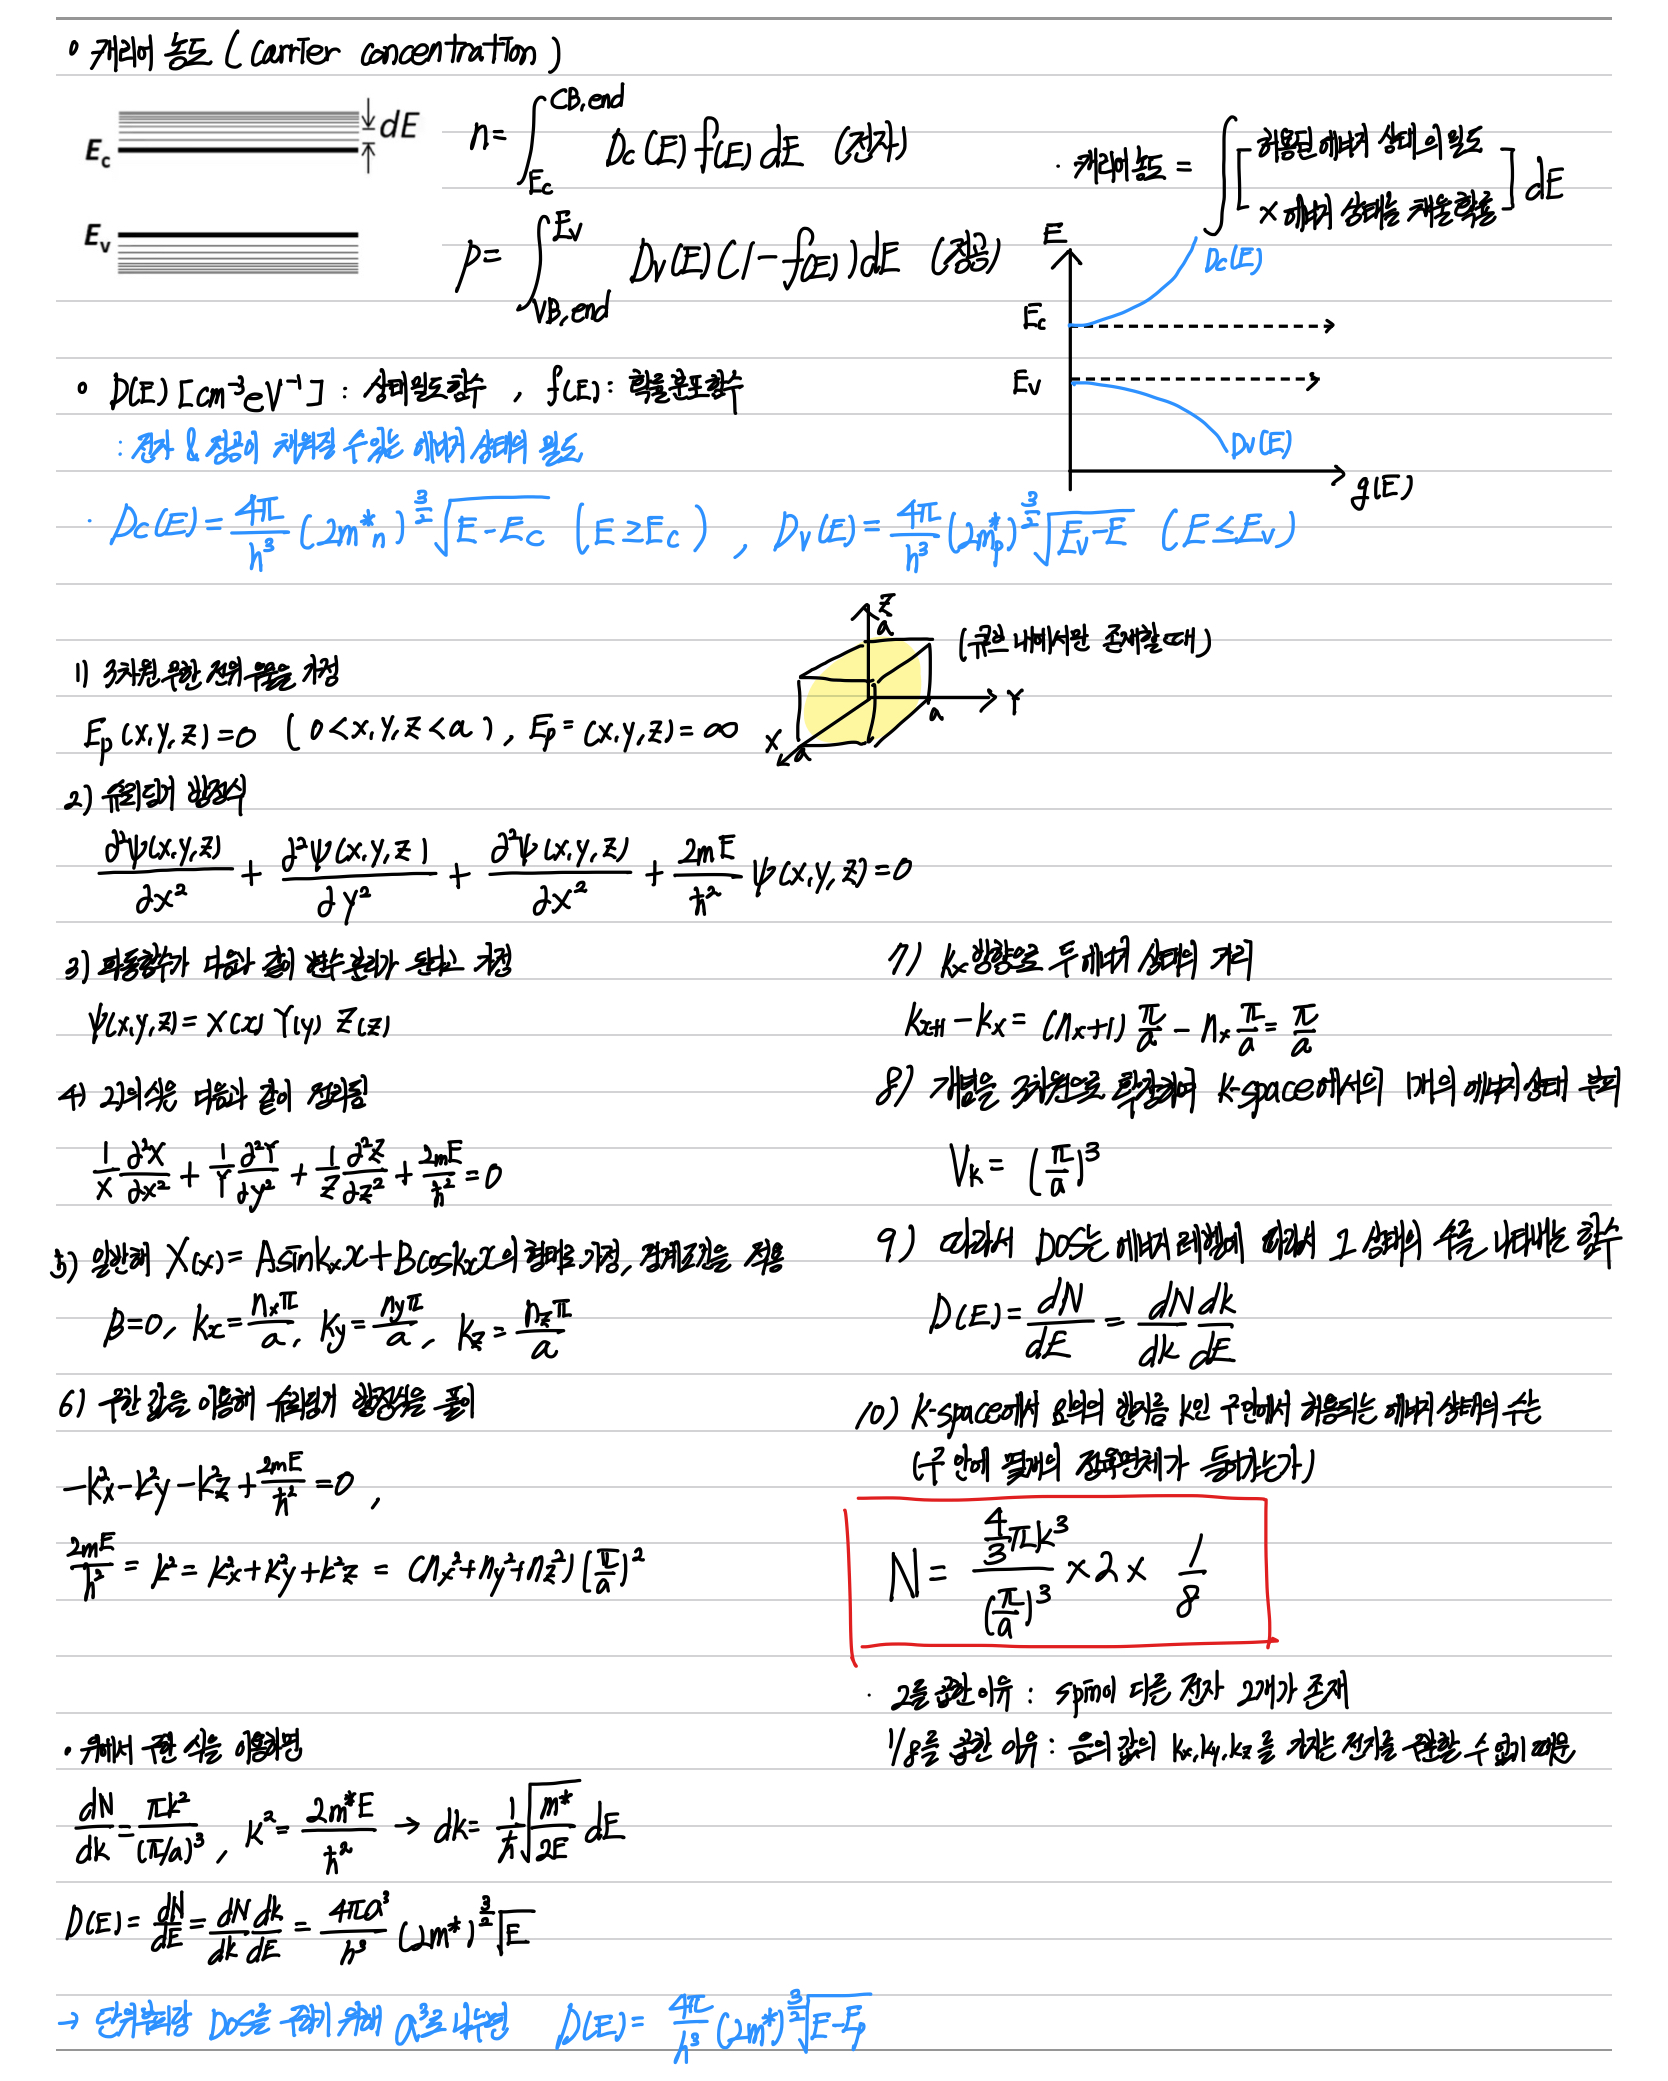 ° 캐리어 농도 (Carrier concentration)
dE
Ec
Ev
n = ∫_{Ec}^{CB,end} Dc(E) f(E) dE (전자)
p = ∫_{VB,end}^{Ev} Dv(E)(1-f(E))dE (정공)
· 캐리어농도 = ∫[허용된 에너지 상태의 밀도
× 에너지 상태를 채울 확률] dE
E
Dc(E)
Ec
Ev
Dv(E)
g(E)
° D(E) [cm⁻³eV⁻¹] : 상태밀도함수 , f(E) : 확률분포함수
: 전자 & 정공이 채워질 수 있는 에너지 상태의 밀도
· Dc(E) = 4π/h³ (2m*n)^{3/2} √(E-Ec) (E ≥ Ec) , Dv(E) = 4π/h³ (2m*p)^{3/2} √(Ev-E) (E ≤ Ev)
Z
a
(큐브 내에서만 존재할 때)
Y
a
X
a
1) 3차원 무한 전위 우물을 가정
Ep(x,y,z) = 0 (0<x,y,z<a) , Ep = (x,y,z) = ∞
2) 슈뢰딩거 방정식
∂²ψ(x,y,z)/∂x² + ∂²ψ(x,y,z)/∂y² + ∂²ψ(x,y,z)/∂x² + 2mE/ħ² ψ(x,y,z) = 0
3) 파동함수가 다음과 같이 변수분리가 된다고 가정
ψ(x,y,z) = X(x) Y(y) Z(z)
4) 2)의 식은 다음과 같이 정리됨
1/X ∂²X/∂x² + 1/Y ∂²Y/∂y² + 1/Z ∂²Z/∂z² + 2mE/ħ² = 0
5) 일반해 X(x) = Asinkxx + Bcoskxx의 형태로 가정, 경계조건을 적용
B=0, kx = nxπ/a, ky = nyπ/a, kz = nzπ/a
6) 구한 값을 이용해 슈뢰딩거 방정식을 풀이
-k²x - k²y - k²z + 2mE/ħ² = 0 ,
2mE/ħ² = k² = k²x + k²y + k²z = (nx² + ny² + nz²)(π/a)²
7) kx방향으로 두 에너지 상태의 거리
kx+1 - kx = (nx+1) π/a - nx π/a = π/a
8) 개념을 3차원으로 확장하여 k-space에서의 1개의 에너지상태 부피
Vk = (π/a)³
9) 따라서 DOS는 에너지 레벨에 따라서 그 상태의 수를 나타내는 함수
D(E) = dN/dE = dN/dk dk/dE
10) K-space에서 임의의 반지름 k인 구안에서 허용되는 에너지 상태의 수는
(구 안에 몇개의 정육면체가 들어가는가)
N = (4/3 πk³)/(π/a)³ × 2 × 1/8
· 2를 곱한 이유 : spin이 다른 전자 2개가 존재
1/8를 곱한 이유 : 음의 값의 kx, ky, kz를 가지는 전자를 구분할 수 없기 때문
• 위에서 구한 식을 이용하면
dN/dk = πk²/(π/a)³ , k² = 2m*E/ħ² → dk = 1/ħ √(m*/2E) dE
D(E) = dN/dE = dN/dk dk/dE = 4πa³/h³ (2m*)^{3/2} √E
→ 단위부피당 DOS를 구하기 위해 a³로 나누면 D(E) = 4π/h³ (2m*)^{3/2} √(E-Ep)